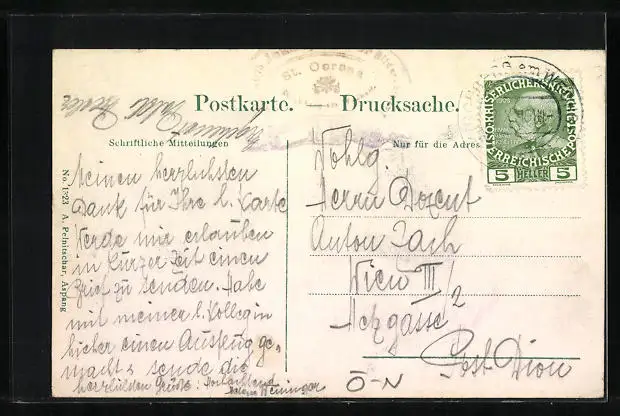 St. Corona
Postkarte. Drucksache.
Schriftliche Mitteilungen
Nur für die Adres
KAISERLICHE KÖNIGLICHE
ÖSTERREICHISCHE POST
5 HELLER 5
No. 1323 A. Pelnitschar, Aspang
Meinen herzlichsten
Dank für Ihre l. Karte
Werde mir erlauben
in kurzer Zeit einen
Brief zu senden. Habe
mit meiner l. Kollegin
hieher einen Ausflug ge-
macht & sende die
herzlichsten Grüße:
Weininger
Wohlg.
Herrn Dozent
Anton
Wien III/2
Post Dion
Ö-N